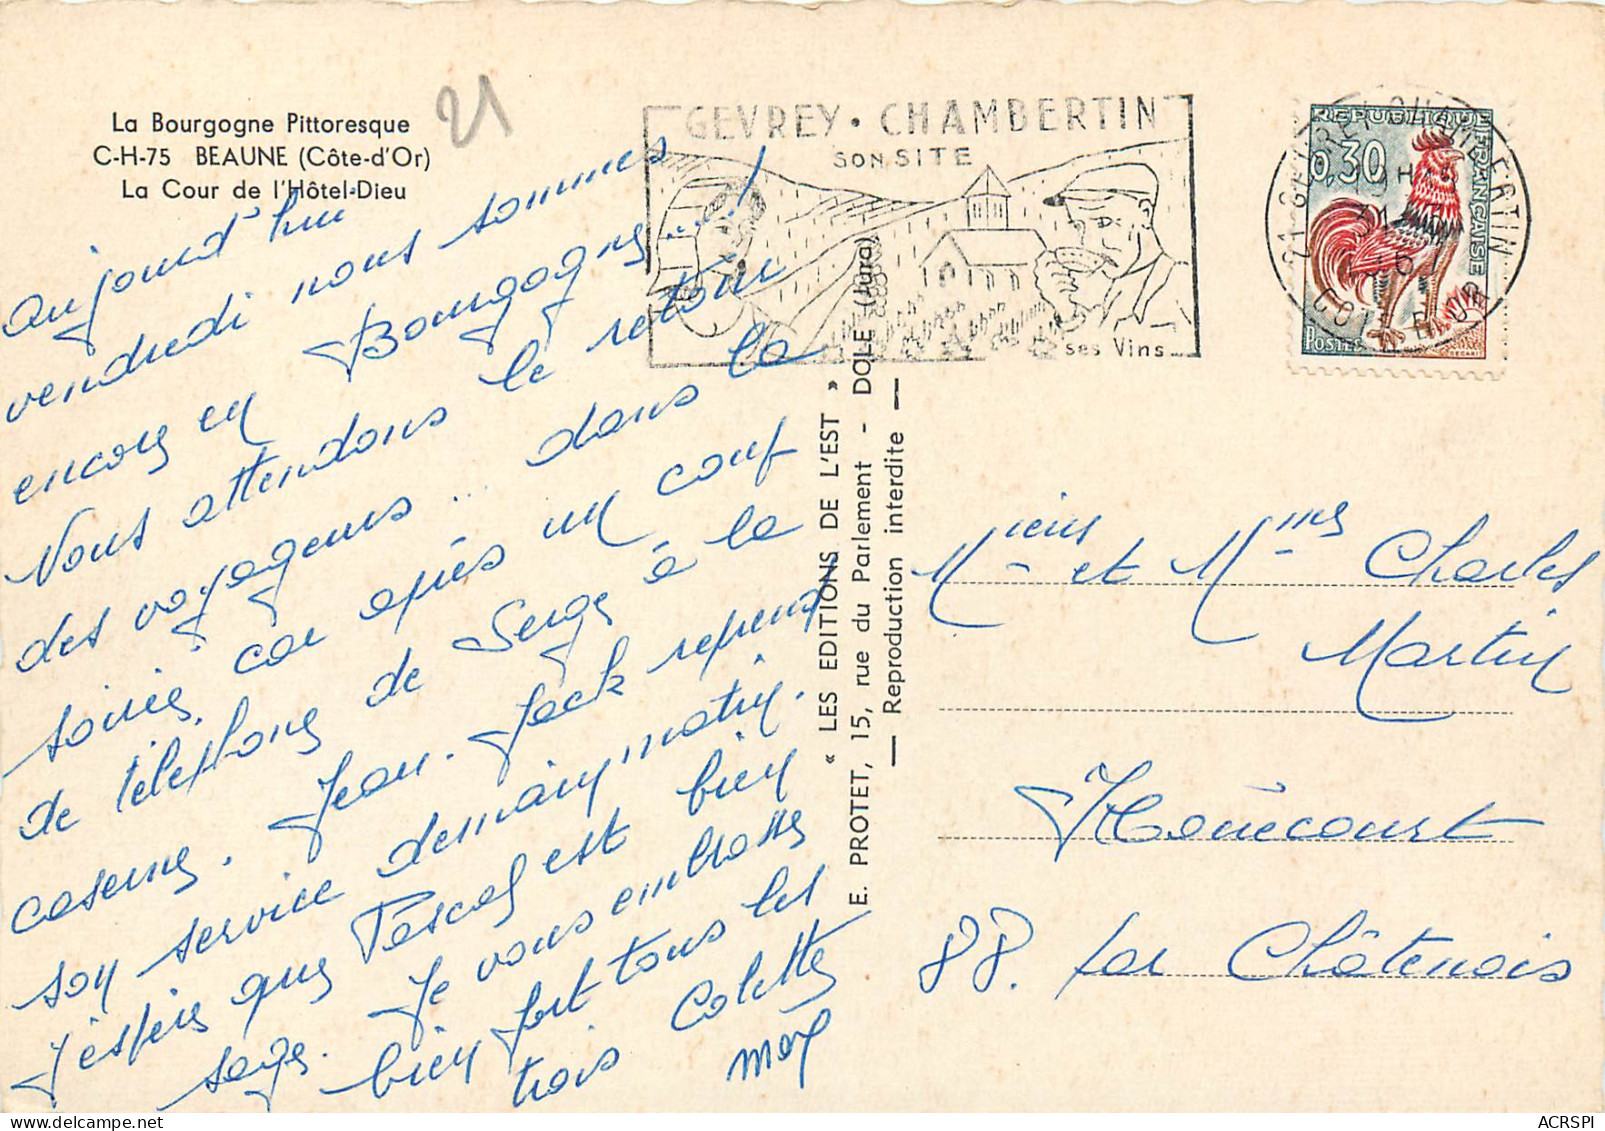 La Bourgogne Pittoresque
C-H-75 BEAUNE (Côte-d'Or)
La Cour de l'Hôtel-Dieu
21
Aujourd'hui
vendredi nous sommes
encore en Bourgogne...!
Nous attendons le retour
des voyageurs... dans la
soirée, car après un coup
de téléphone de Serge à la
caserne. Jean-Jack reprend
son service demain matin.
J'espère que Pascal est bien
sage. Je vous embrasse
bien fort tous les
trois Colette
GEVREY • CHAMBERTIN
SON SITE
ses Vins...
REPUBLIQUE FRANCAISE
0,30
POSTES
21 - GEVREY CHAMBERTIN
COTE D'OR
« LES EDITIONS DE L'EST »
E. PROTET, 15, rue du Parlement - DOLE (Jura)
— Reproduction interdite —
Mieurs et Mmes Charles
Martin
Houécourt
88. par Châtenois
ACRSPI